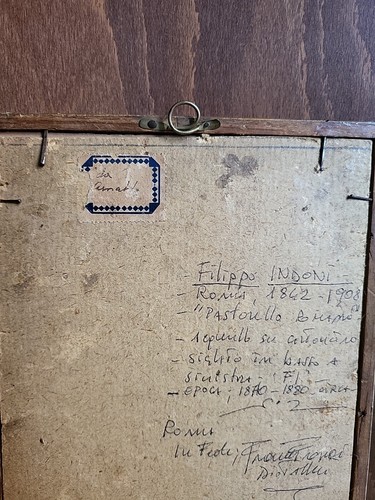 da
Filippo INDONI -
- ROMA, 1842 - 1908
- "PASTORELLO ROMANO"
- acquerello su cartoncino
- siglato in basso a
sinistra "F.I."
- EPOCA: 1870 - 1880 circa
Roma
In Fede,